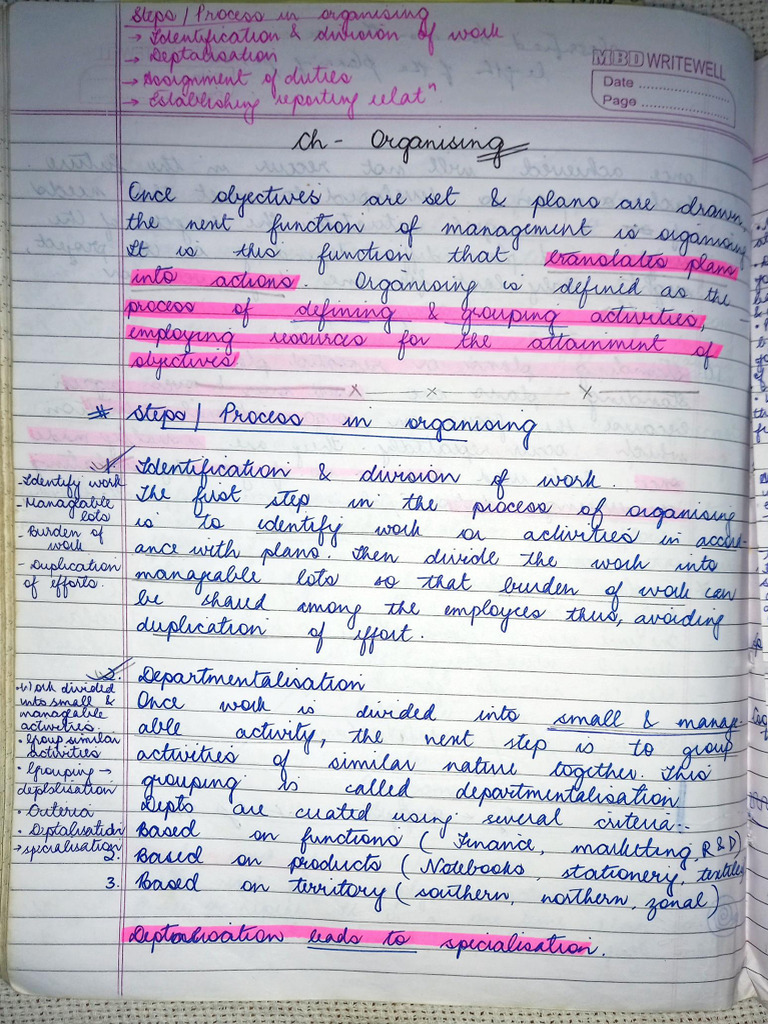 Steps / Process in organising
→ Identification & division of work
→ Deptalisation
→ Assignment of duties
→ Establishing reporting relatⁿ
MBD WRITEWELL
Date ..............................
Page ..............................
Ch - Organising
Once objectives are set & plans are drawn,
the next function of management is organising
It is this function that translates plans
into actions. Organising is defined as the
process of defining & grouping activities,
employing resources for the attainment of
objectives
# Steps / Process in organising
1. Identification & division of work.
The first step in the process of organising
is to identify work or activities in accord-
ance with plans. Then divide the work into
manageable lots so that burden of work can
be shared among the employees thus, avoiding
duplication of effort.
- Identify work
- Manageable lots
- Burden of work
- Duplication of efforts.
2. Departmentalisation
Once work is divided into small & manage-
able activity, the next step is to group
activities of similar nature together. This
grouping is called departmentalisation
Depts are created using several criteria:-
Based on functions (Finance, marketing, R&D)
2. Based on products (Notebooks, stationery, textiles
3. Based on territory (southern, northern, zonal)
• Work divided
into small &
manageable
activities
• Group similar
activities
• Grouping →
deptalisation
• Criteria
• Deptalisation
→ specialisation
Deptalisation leads to specialisation.